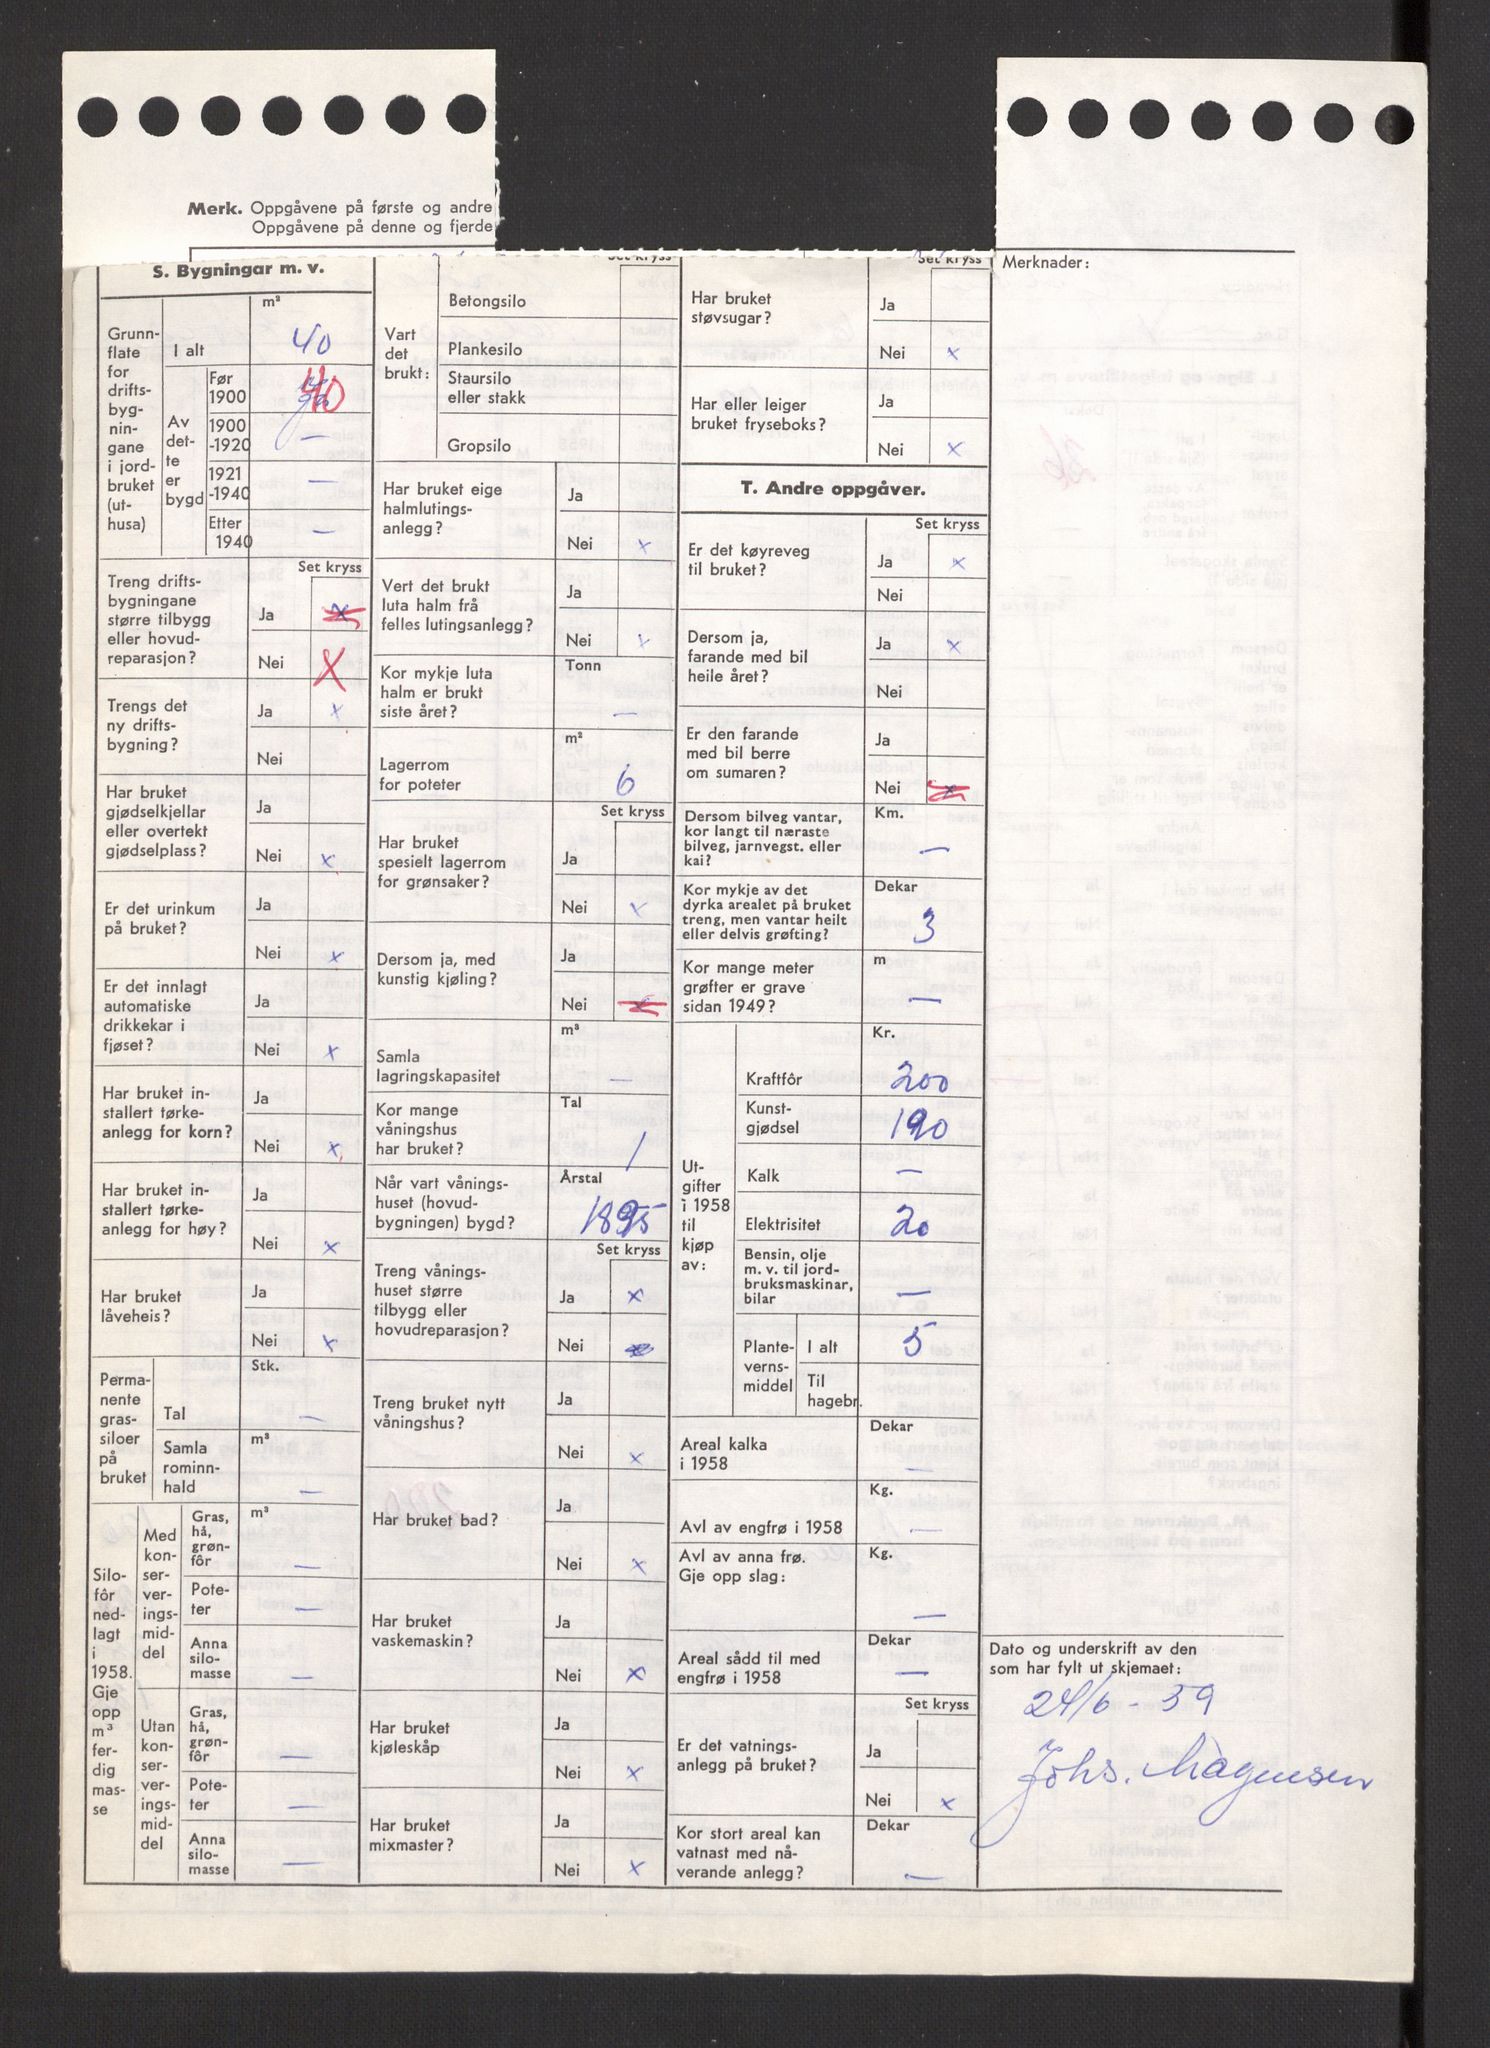 Merk. Oppgåvene på første og andre
Oppgåvene på denne og fjerde
S. Bygningar m. v.
m²
Grunn-
flate
for
drifts-
byg-
nin-
gane
i jord-
bruket
(ut-
husa)
I alt 40
Av
det-
te
er
bygd
Før
1900 40
1900
-1920 —
1921
-1940 —
Etter
1940 —
Set kryss
Treng drifts-
bygningane
større tilbygg
eller hovud-
reparasjon?
Ja x
Nei X
Trengs det
ny drifts-
bygning?
Ja x
Nei
Har bruket
gjødselkjellar
eller overtekt
gjødselplass?
Ja
Nei x
Er det urinkum
på bruket?
Ja
Nei x
Er det innlagt
automatiske
drikkekar i
fjøset?
Ja
Nei x
Har bruket in-
stallert tørke-
anlegg for korn?
Ja
Nei x
Har bruket in-
stallert tørke-
anlegg for høy?
Ja
Nei x
Har bruket
låveheis?
Ja
Nei x
Perma-
nente
gras-
siloer
på
bruket
Stk.
Tal —
m³
Samla
rominn-
hald —
Silo-
fôr
ned-
lagt
i
1958.
Gje
opp
m³
fer-
dig
mas-
se
Med
kon-
ser-
ver-
ings-
mid-
del
m³
Gras,
hå,
grøn-
fôr —
Pote-
ter —
Anna
silo-
masse —
Utan
kon-
ser-
ver-
ings-
mid-
del
Gras,
hå,
grøn-
fôr —
Pote-
ter —
Anna
silo-
masse —
Set kryss
Vart
det
brukt:
Betongsilo
Plankesilo
Staursilo
eller stakk
Gropsilo
Har bruket eige
halmlutings-
anlegg?
Ja
Nei x
Vert det brukt
luta halm frå
felles lutingsanlegg?
Ja
Nei x
Kor mykje luta
halm er brukt
siste året?
Tonn
—
Lagerrom
for poteter
m²
6
Set kryss
Har bruket
spesielt lagerrom
for grønsaker?
Ja
Nei x
Dersom ja, med
kunstig kjøling?
Ja
Nei x
Samla
lagringskapasitet
m³
—
Kor mange
våningshus
har bruket?
Tal
1
Når vart vånings-
huset (hovud-
bygningen) bygd?
Årstal
1895
Set kryss
Treng vånings-
huset større
tilbygg eller
hovudreparasjon?
Ja x
Nei x
Treng bruket nytt
våningshus?
Ja
Nei x
Har bruket bad?
Ja
Nei x
Har bruket
vaskemaskin?
Ja
Nei x
Har bruket
kjøleskåp
Ja
Nei x
Har bruket
mixmaster?
Ja
Nei x
Set kryss
Har bruket
støvsugar?
Ja
Nei x
Har eller leiger
bruket fryseboks?
Ja
Nei x
T. Andre oppgåver.
Set kryss
Er det køyreveg
til bruket?
Ja x
Nei
Dersom ja,
farande med bil
heile året?
Ja x
Nei
Er den farande
med bil berre
om sumaren?
Ja
Nei x
Dersom bilveg vantar,
kor langt til næraste
bilveg, jarnvegst. eller
kai?
Km.
—
Kor mykje av det
dyrka arealet på bruket
treng, men vantar heilt
eller delvis grøfting?
Dekar
3
Kor mange meter
grøfter er grave
sidan 1949?
m
—
Ut-
gifter
i 1958
til
kjøp
av:
Kr.
Kraftfôr 200
Kunst-
gjødsel 190
Kalk —
Elektrisitet 20
Bensin, olje
m. v. til jord-
bruksmaskinar,
bilar —
Plante-
verns-
middel
I alt 5
Til
hagebr.
Areal kalka
i 1958
Dekar
—
Avl av engfrø i 1958
Kg.
—
Avl av anna frø.
Gje opp slag:
Kg.
—
Areal sådd til med
engfrø i 1958
Dekar
—
Set kryss
Er det vatnings-
anlegg på bruket?
Ja
Nei x
Kor stort areal kan
vatnast med nå-
verande anlegg?
Dekar
—
Merknader:
Dato og underskrift av den
som har fylt ut skjemaet:
24/6 - 59
Johs. Magnusen